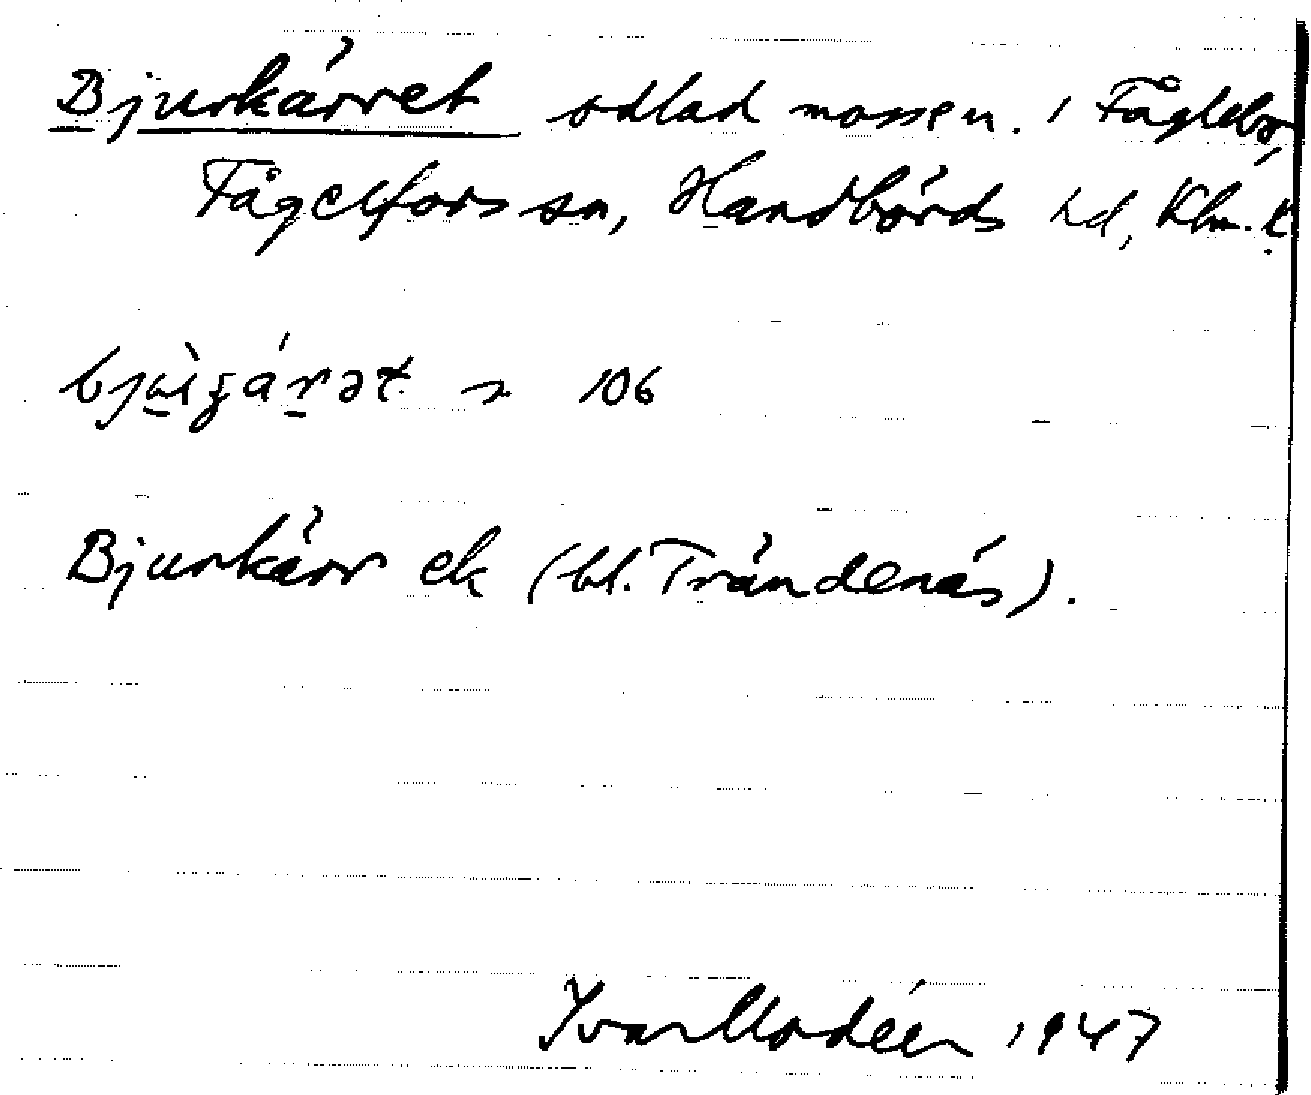 Bjurkärret odlad mossen. i Fågelebo,
Fågelfors sn, Handbörds hd, Klm. l.
106
Bjurkärr ek (bl. Trändenäs).
Ivar Modéer 1947